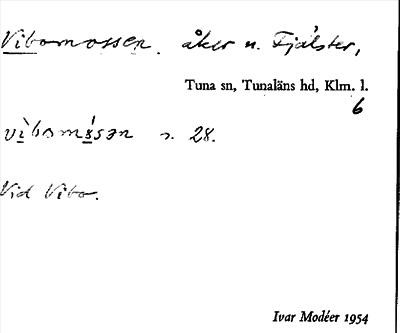 Vibomossen. åker n. Fjälster,
Tuna sn, Tunaläns hd, Klm. l.
6
vìbomåsən s. 28.
Vid Vibo.
Ivar Modéer 1954